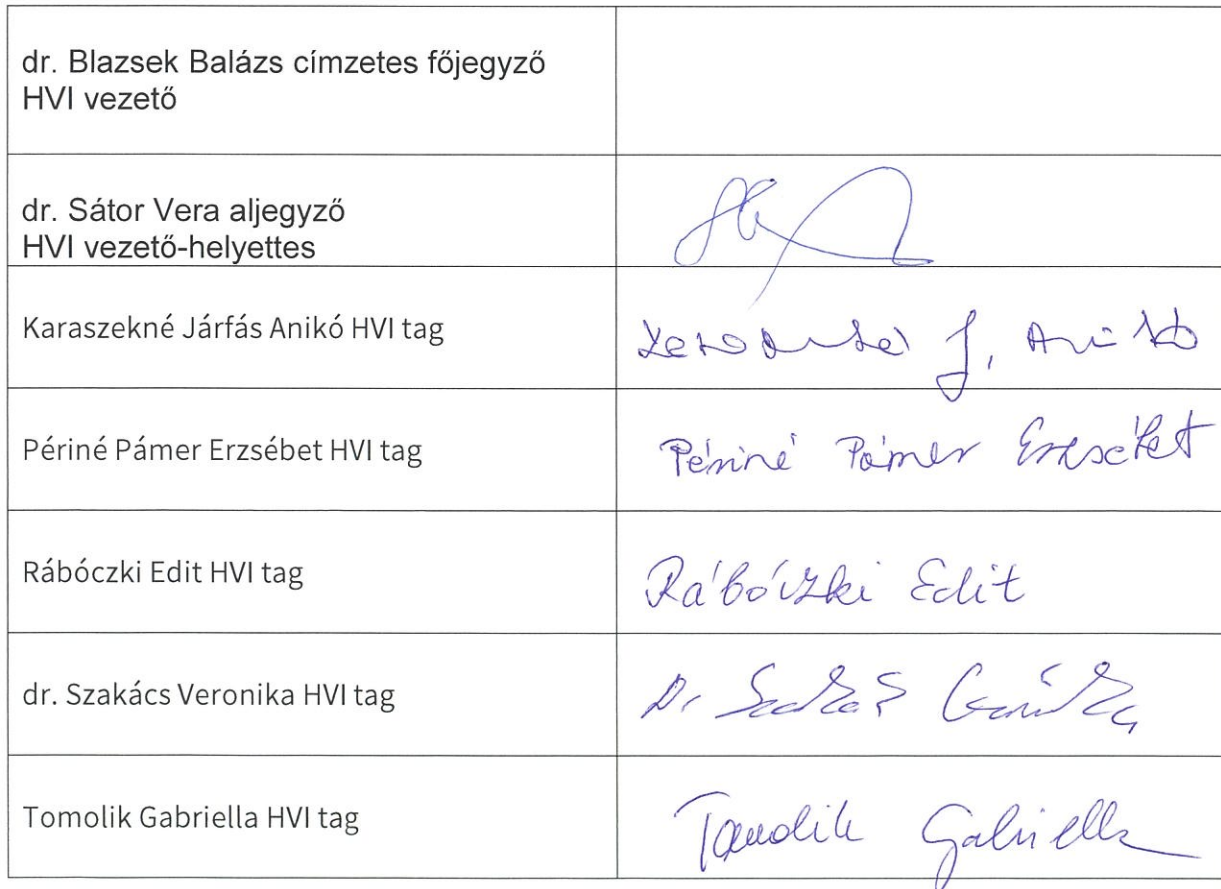 dr. Blazsek Balázs címzetes főjegyző
HVI vezető
dr. Sátor Vera aljegyző
HVI vezető-helyettes
Karaszekné Járfás Anikó HVI tag
J. Anikó
Périné Pámer Erzsébet HVI tag
Périné Pámer Erzsébet
Rábóczki Edit HVI tag
Rábóczki Edit
dr. Szakács Veronika HVI tag
Dr Szakács
Tomolik Gabriella HVI tag
Tomolik Gabriella